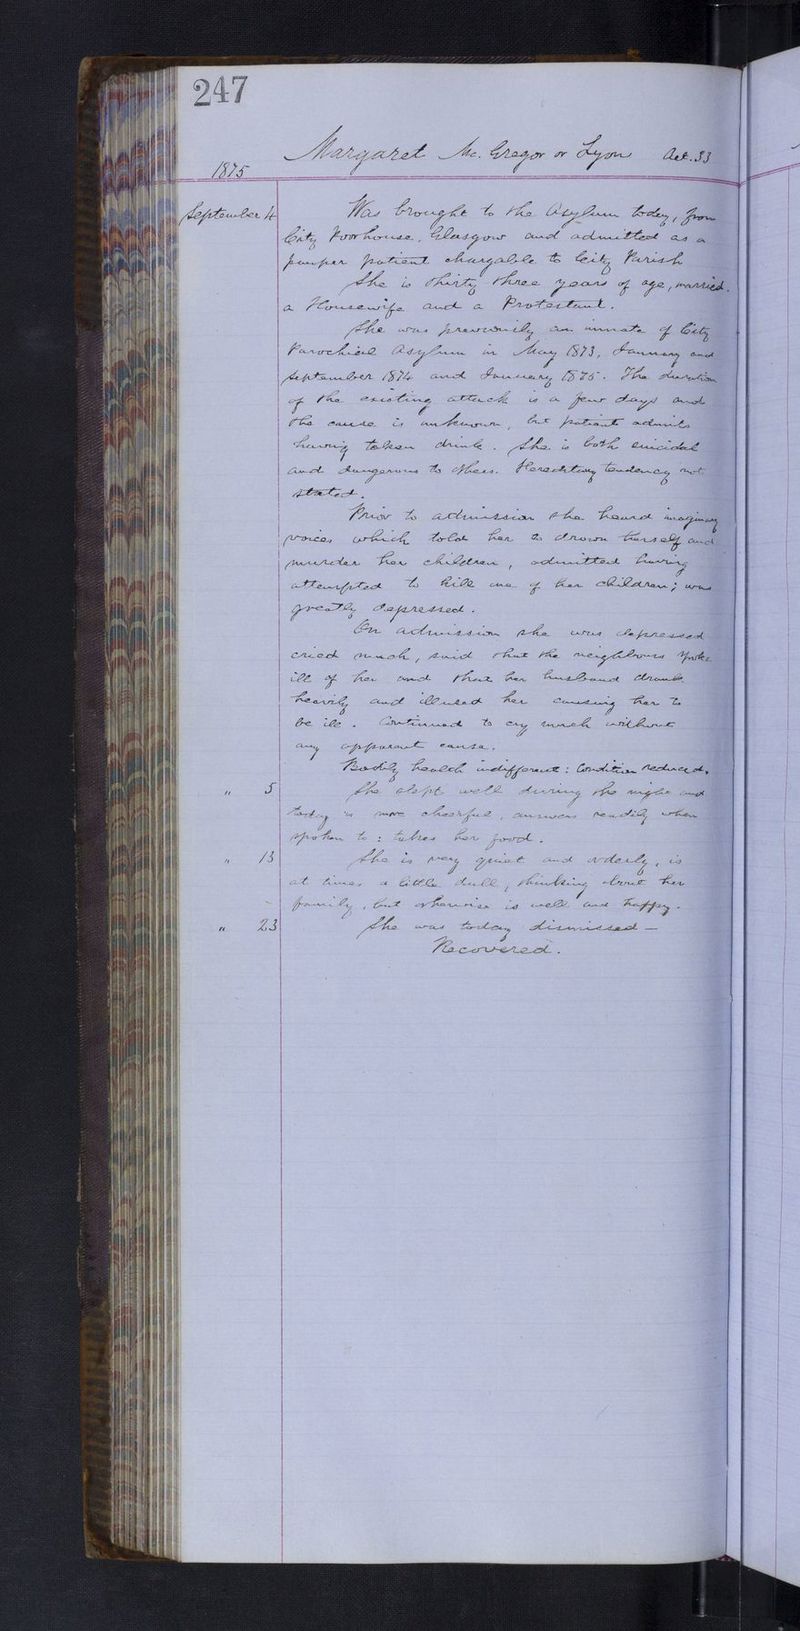 247
Margaret Mc. Gregor or Lyon Aet. 33
1875
September 4 Was brought to the Asylum today, from
City Poorhouse, Glasgow and admitted as a
pauper patient chargable to City Parish
She is thirty three years of age, married.
a Housewife and a Protestant.
She was previously an inmate of City
Parochial Asylum in May 1873, January and
September 1874 and January 1875. The duration
of the existing attack is a few days and
the cause is unknown, but patient admits
having taken drink. She is both suicidal
and dangerous to others. Hereditary tendency not
stated.
Prior to admission she heard imaginary
voices which told her to drown herself and
murder her children, admitted having
attempted to kill one of her children; was
greatly depressed.
On admission she was depressed
cried much, said that the neighbours spoke
ill of her and that her husband drank
heavily and illused her causing her to
be ill. Continued to cry much without
any apparent cause.
Bodily health indifferent: Condition reduced.
" 5 She slept well during the night and
today is more cheerful, answers readily when
spoken to: takes her food.
" 13 She is very quiet and orderly, is
at times a little dull, thinking about her
family, but otherwise is well and happy.
" 23 She was today dismissed —
Recovered.